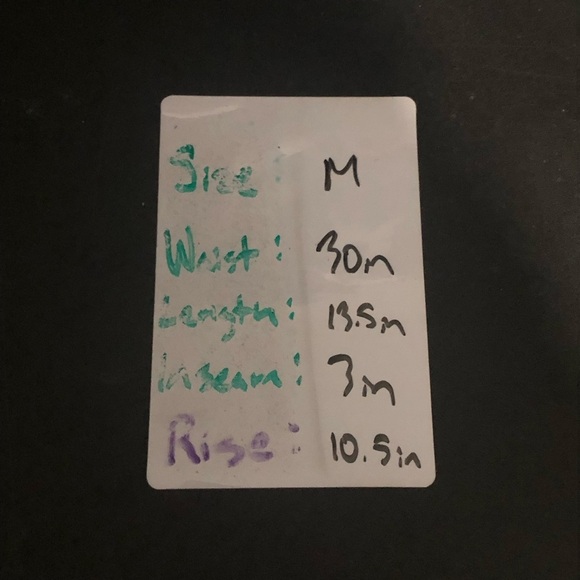 Size: M
Waist: 30in
Length: 13.5in
Inseam: 3in
Rise: 10.5in